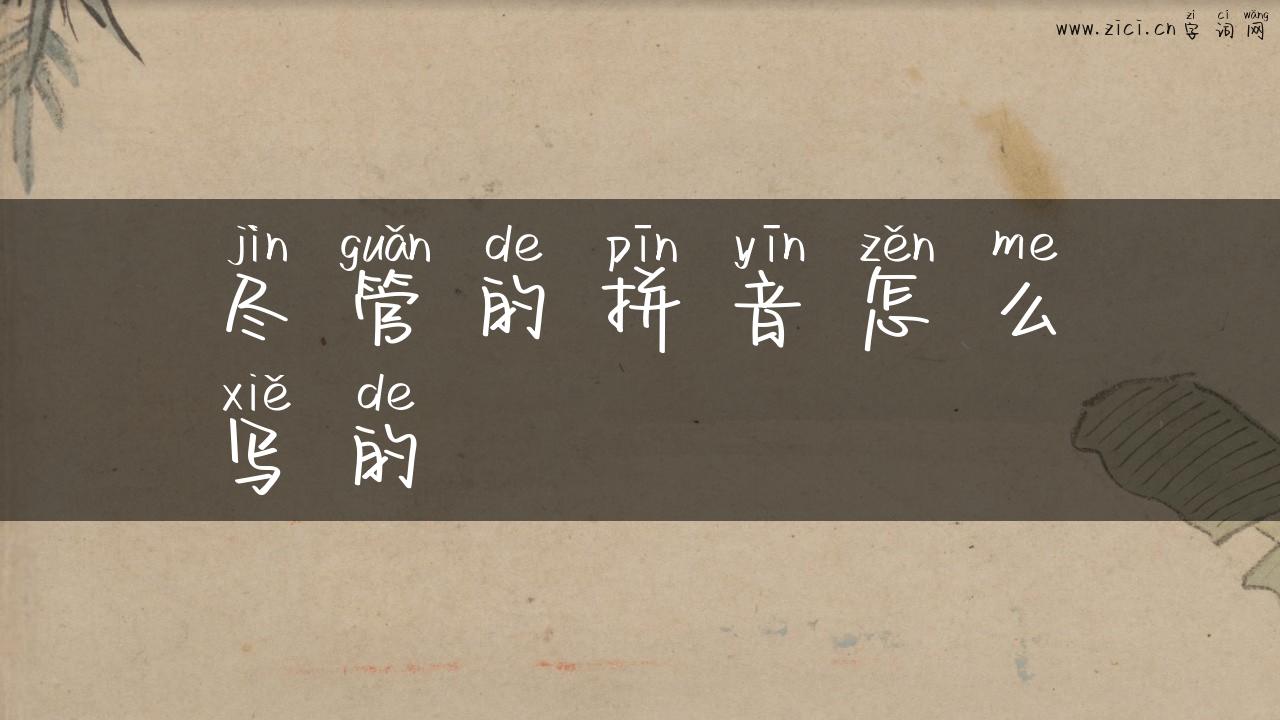 zì cí wǎng
www.zici.cn 字 词 网
jìn guǎn de pīn yīn zěn me
尽 管 的 拼 音 怎 么
xiě de
写 的